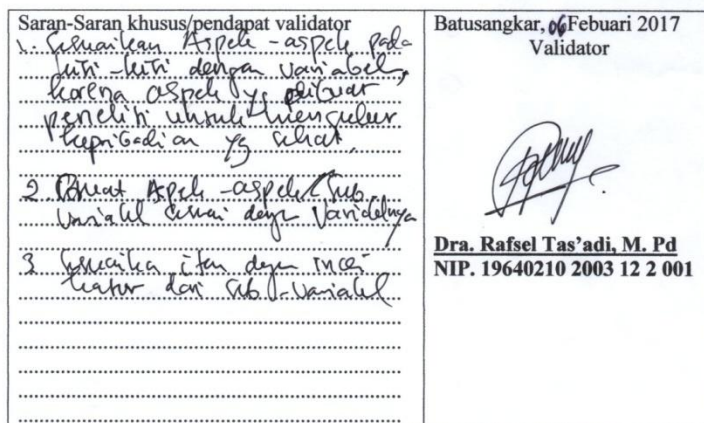 Saran-Saran khusus/pendapat validator
1. Sesuaikan Aspek-aspek pada
kisi-kisi dengan variabel,
karena aspek yg dibuat
peneliti untuk mengukur
kepribadian yg sehat.
2. Buat Aspek-aspek/Sub
Variabel sesuai dengan Variabelnya
3. Sesuaikan item dengan indi
kator dari Sub-Variabel
Batusangkar, 06 Febuari 2017
Validator
Dra. Rafsel Tas'adi, M. Pd
NIP. 19640210 2003 12 2 001